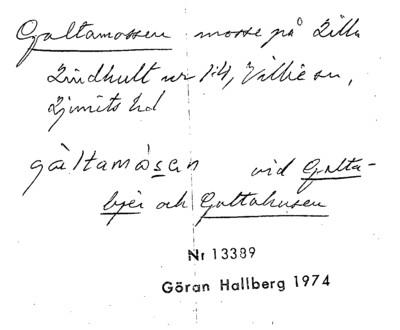 Galtamossen mosse på Lilla
Lindhult nr 1:4, Villie sn,
Ljunits hd
gàltamåsen vid Galta-
bjer och Galtahusen
Nr 13389
Göran Hallberg 1974